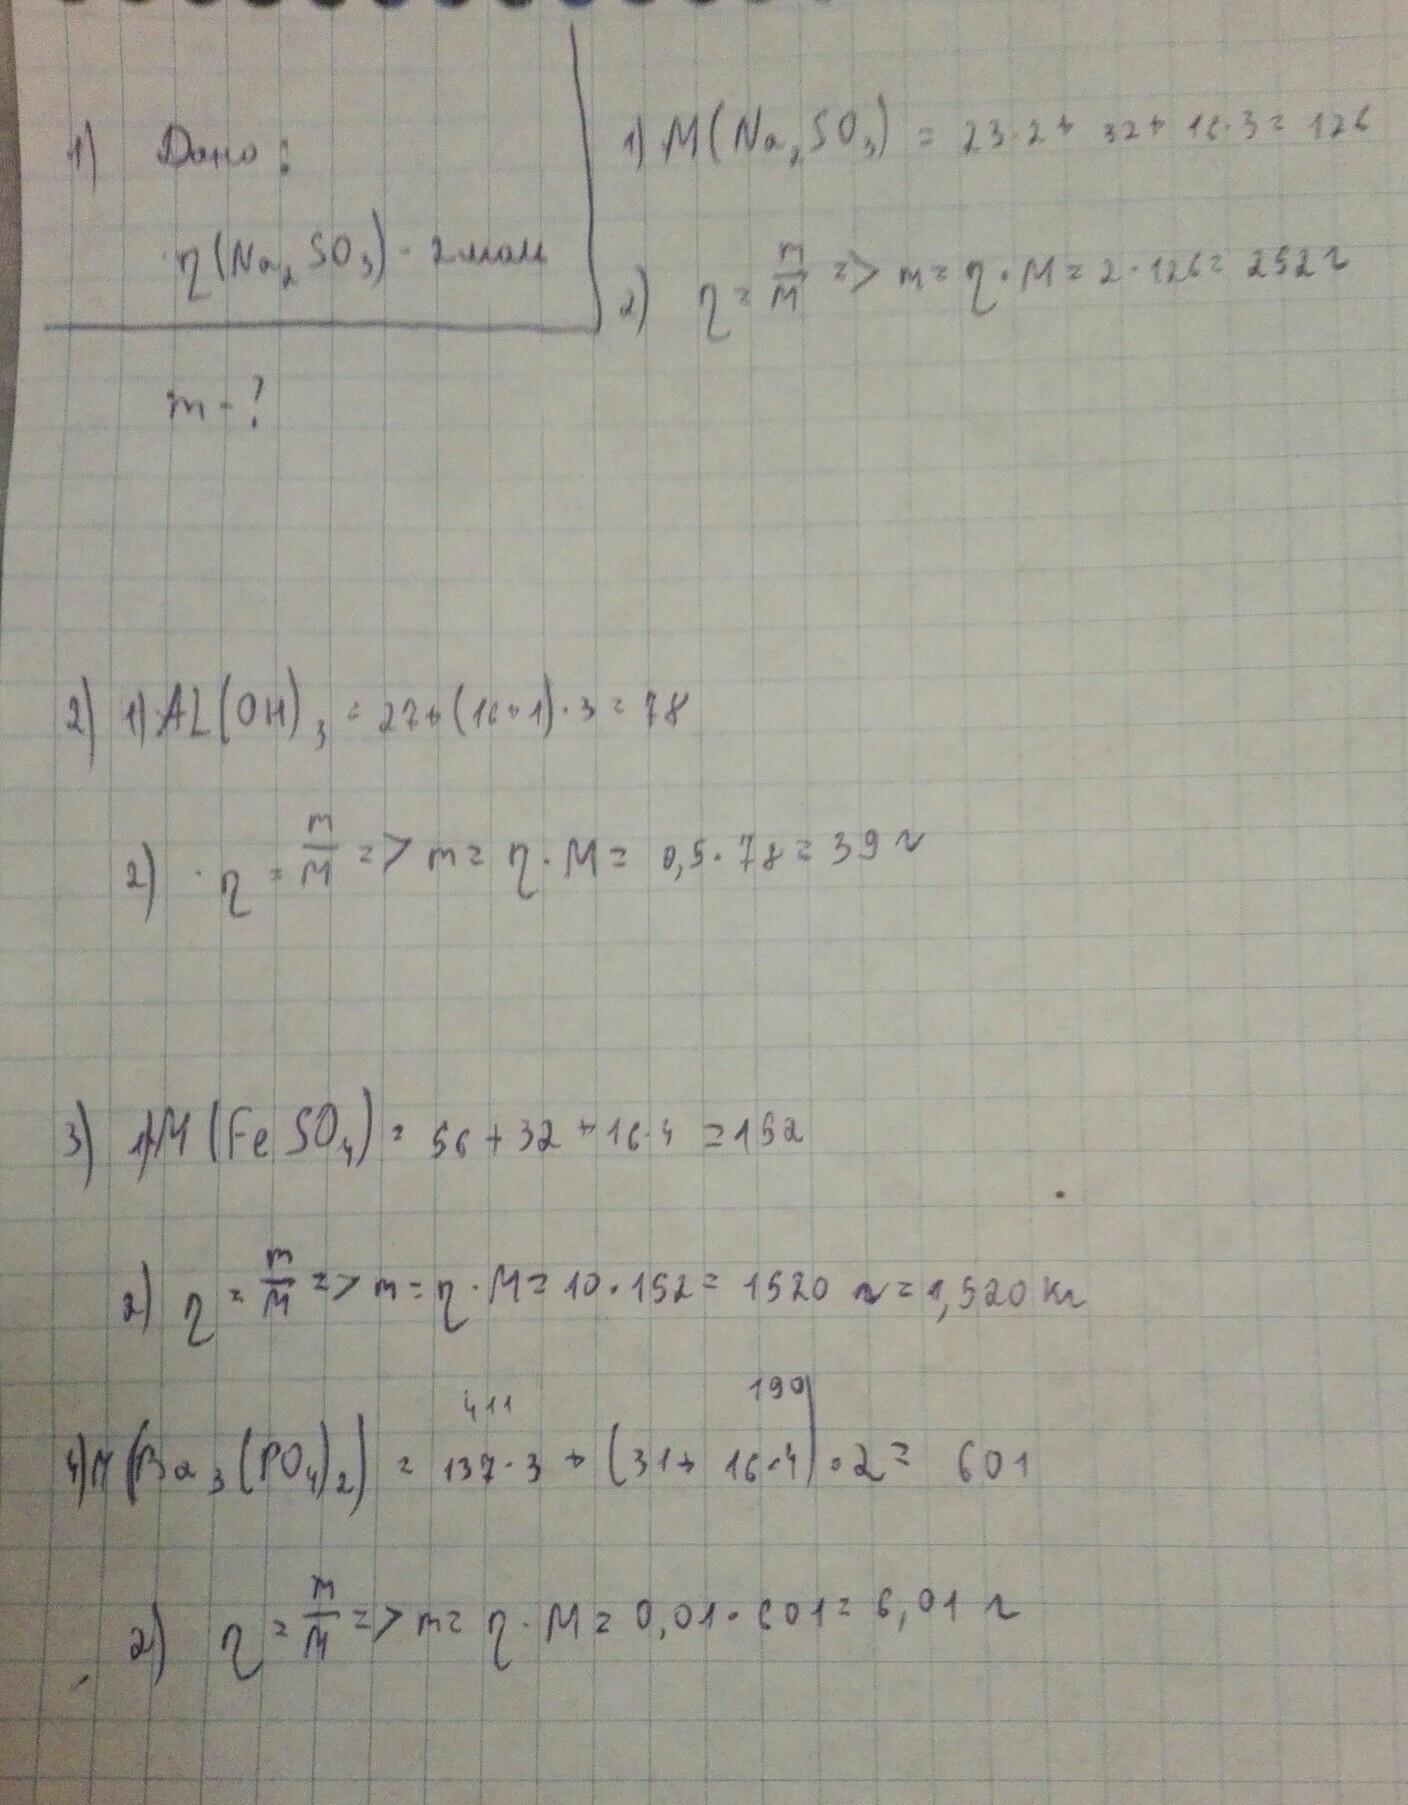 1) Дано:
η(Na₂SO₃) - 2 моль
m - ?
1) M(Na₂SO₃) = 23·2 + 32 + 16·3 = 126
2) η = m/M => m = η·M = 2·126 = 252 г
2) 1) AL(OH)₃ = 27+(16+1)·3 = 78
2) · η = m/M => m = η·M = 0,5·78 = 39 г
3) 1) M(FeSO₄) = 56 + 32 + 16·4 = 152
2) η = m/M => m = η·M = 10·152 = 1520 г = 1,520 кг
411 190
4) M(Ba₃(PO₄)₂) = 137·3 + (31 + 16·4)·2 = 601
2) η = m/M => m = η·M = 0,01·601 = 6,01 г